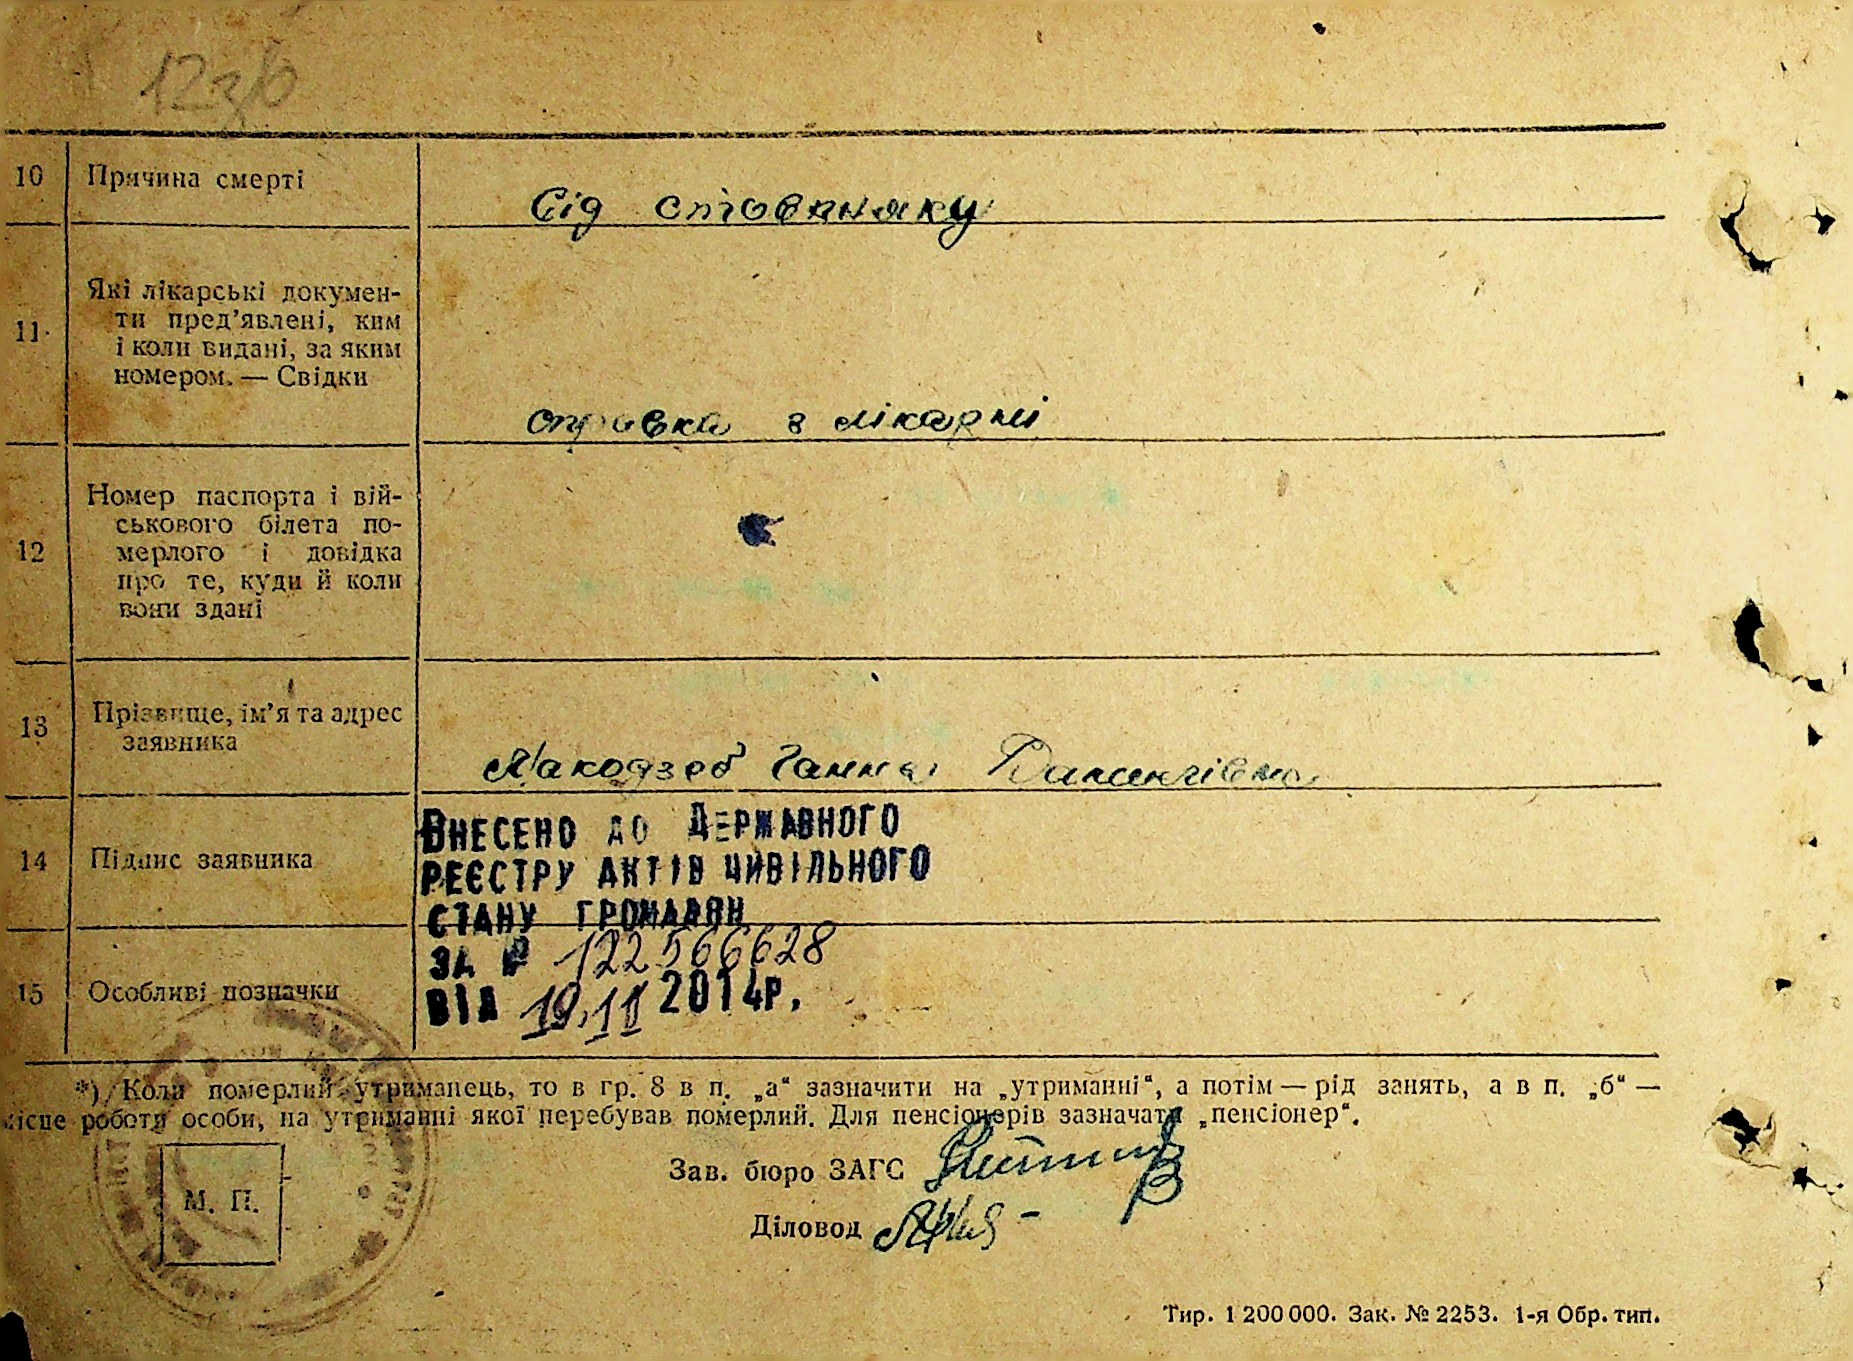 123б
10 Причина смерті
Від стовпняку
11 Які лікарські докумен-
ти пред'явлені, ким
і коли видані, за яким
номером. — Свідки
справка з лікарні
12 Номер паспорта і вій-
ськового білета по-
мерлого і довідка
про те, куди й коли
вони здані
13 Прізвище, ім'я та адрес
заявника
Макодзеб Ганна
14 Підпис заявника
ВНЕСЕНО ДО ДЕРЖАВНОГО
РЕЄСТРУ АКТІВ ЦИВІЛЬНОГО
СТАНУ ГРОМАДЯН
ЗА № 122566628
15 Особливі позначки
ВІД 19.11 2014р.
*) Коли померлий утриманець, то в гр. 8 в п. „а“ зазначити на „утриманні“, а потім — рід занять, а в п. „б“ —
місце роботи особи, на утриманні якої перебував померлий. Для пенсіонерів зазначати „пенсіонер“.
Зав. бюро ЗАГС
М. П.
Діловод
Тир. 1 200 000. Зак. № 2253. 1-я Обр. тип.